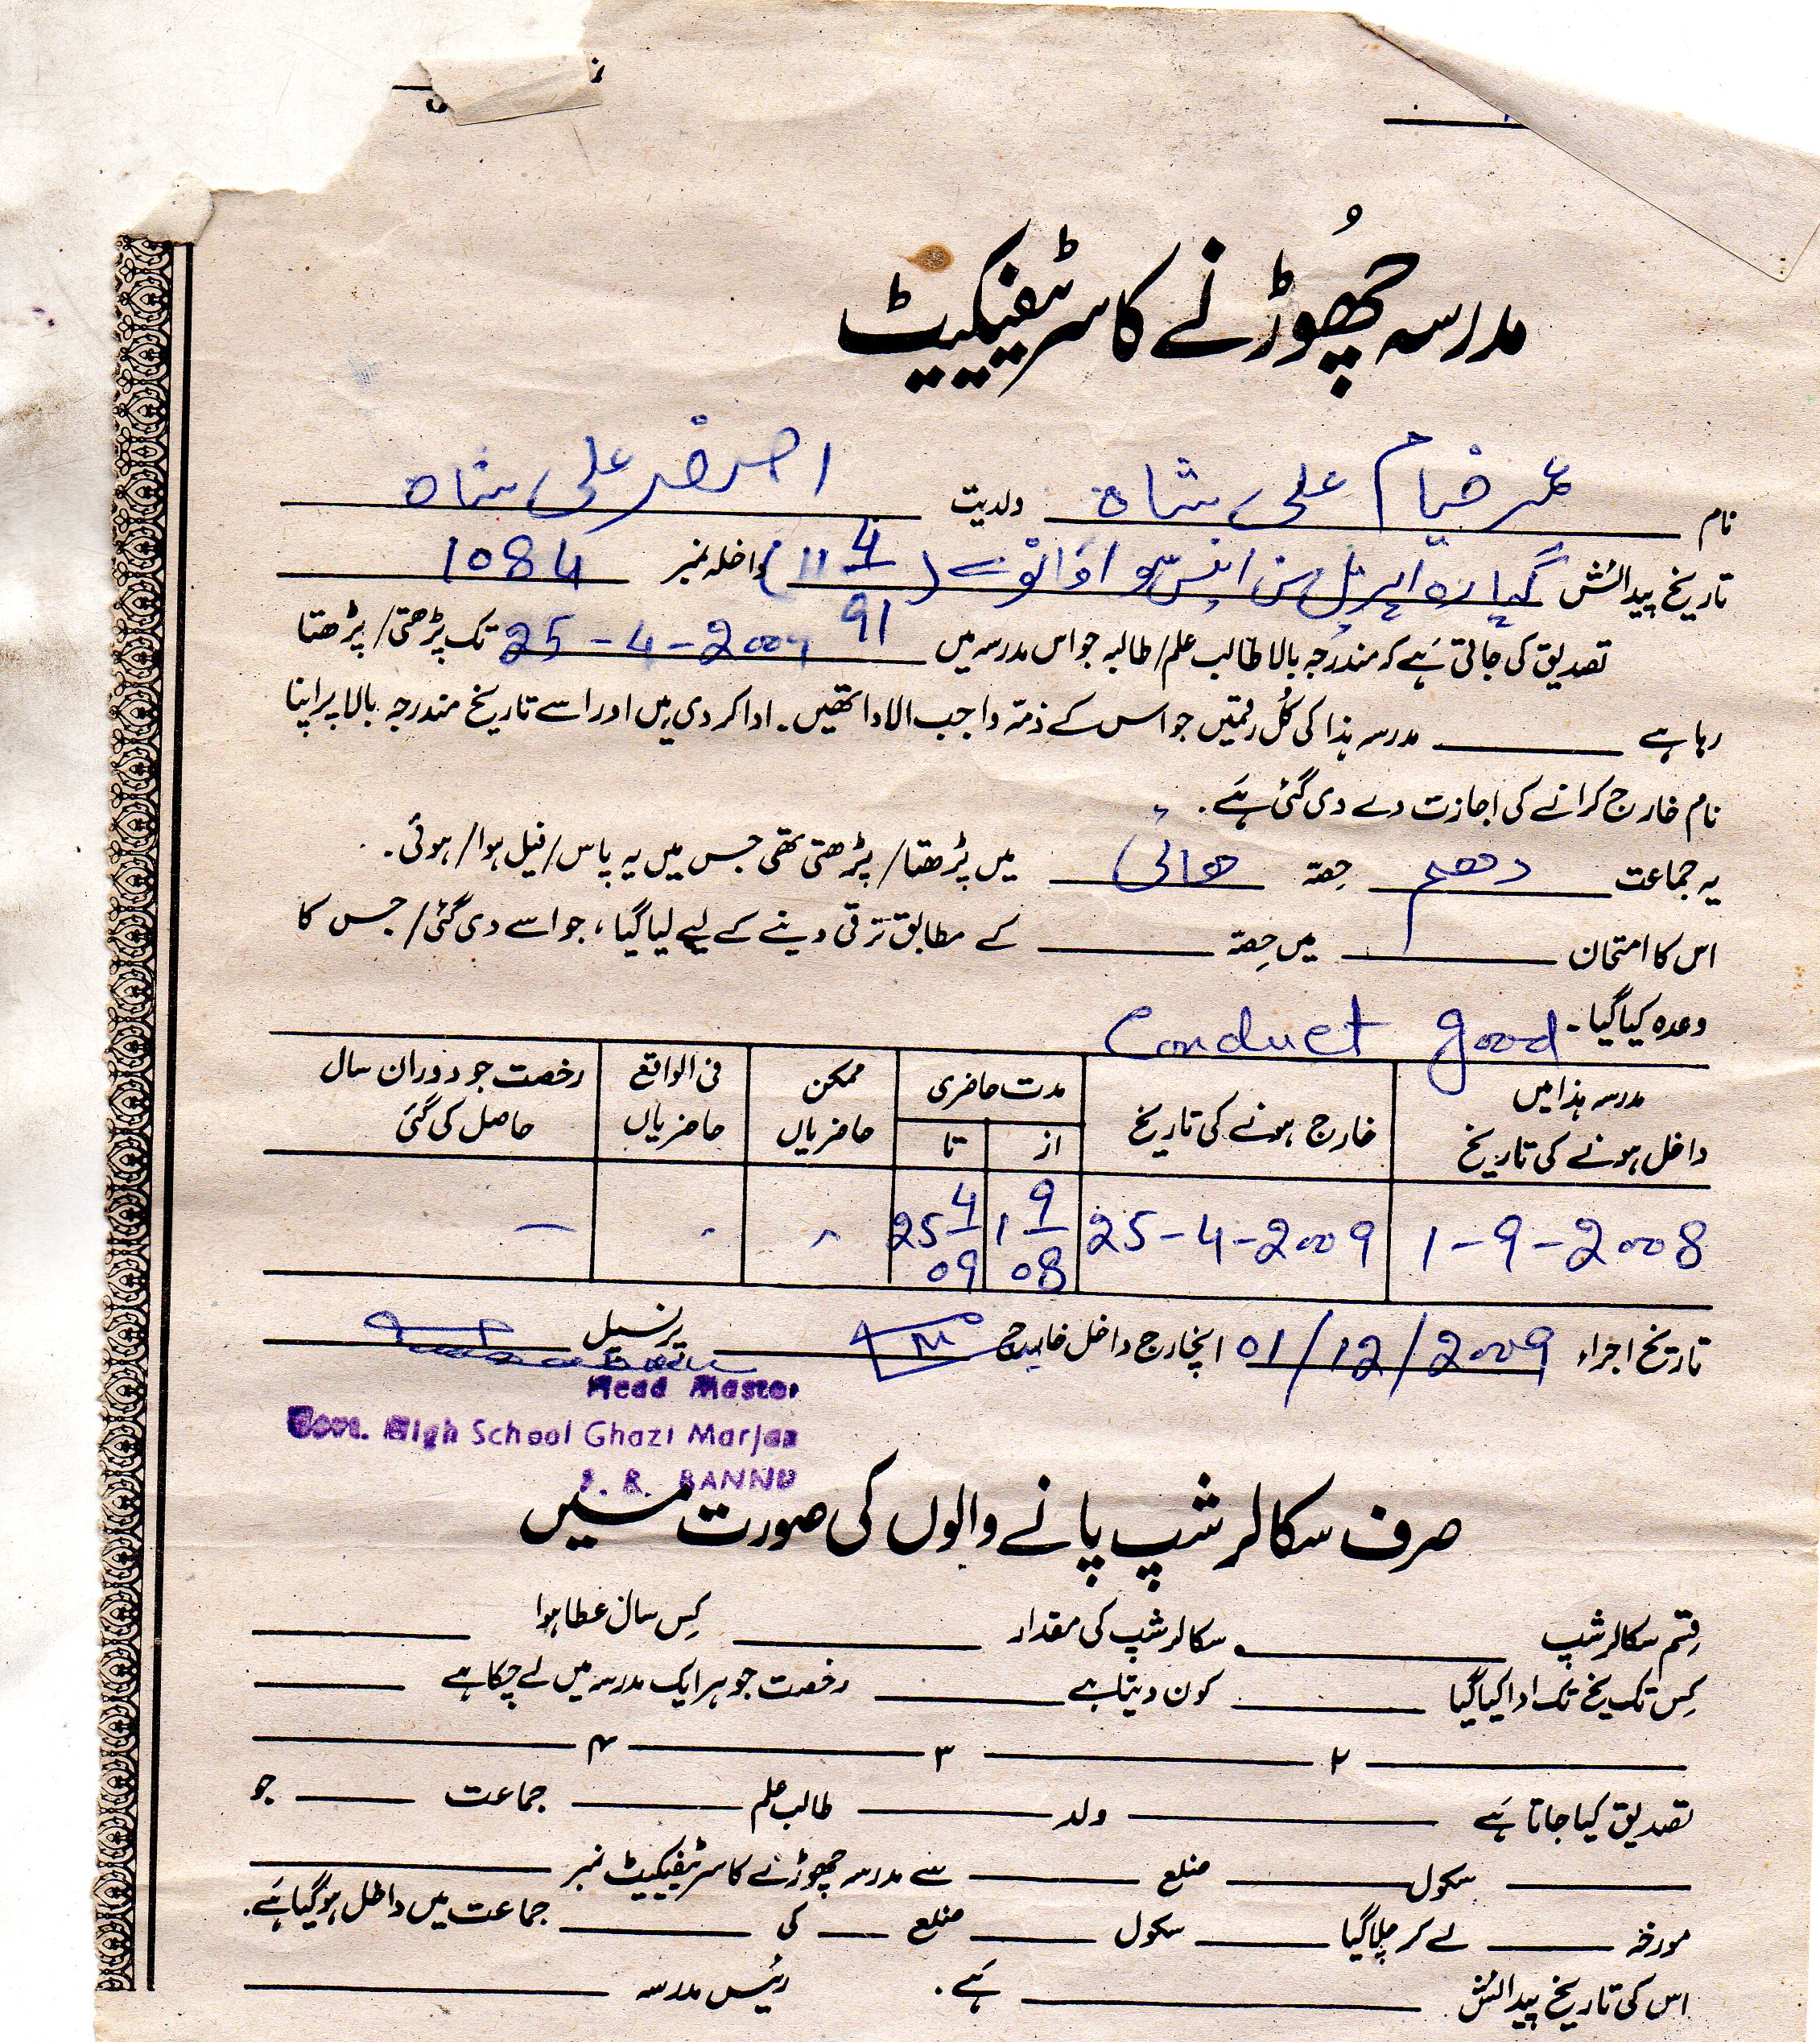 مدرسہ چھُوڑنے کا سرٹیفیکیٹ
نام عمر خیام علی شاہ ولدیت اصغر علی شاہ
تاریخ پیدائش گیارہ اپریل سن انیس سو اکانوے (11 4/91) داخلہ نمبر 1084
تصدیق کی جاتی ہَے کہ مندرجہ بالا طالب علم/طالبہ جو اس مدرسہ میں 25-4-2009 تک پڑھتی/پڑھتا
رہا ہے ــــــ مدرسہ ہٰذا کی کُل رقمیں جو اس کے ذمّہ واجب الادا تھیں۔ ادا کر دی ہیں اور اسے تاریخ مندرجہ بالا پر اپنا
نام خارج کرانے کی اجازت دے دی گئی ہَے۔
یہ جماعت دھم حِصّہ ھائی میں پڑھتا/پڑھتی تھی جس میں یہ پاس/فیل ہوا/ہوئی۔
اس کا امتحان ــــــ میں حِصّہ ــــــ کے مطابق ترقی دینے کے لیے لیا گیا، جو اسے دی گئی/جس کا
وعدہ کیا گیا۔ Conduct good
مدرسہ ہٰذا میں داخل ہونے کی تاریخ خارج ہونے کی تاریخ مدت حاضری ممکن حاضریاں فی الواقع حاضریاں رخصت جو دوران سال حاصل کی گئی
از تا
1-9-2008 25-4-2009 1 9/08 25 4/09 - - —
تاریخ اجراء 01/12/2009 انچارج داخل خارج ــــــ پرنسپل
Head Master
Govt. High School Ghazi Marjan
F. R. BANNU
صرف سکالرشپ پانے والوں کی صورت میں
قِسم سکالرشپ ــــــ سکالرشپ کی مقدار ــــــ کِس سال عطا ہوا ــــــ
کِس تاریخ تک ادا کیا گیا ــــــ کون دیتا ہے ــــــ رخصت جو ہر ایک مدرسہ میں لے چکا ہے ــــــ
ــــــ ۲ ــــــ ۳ ــــــ ۴ ــــــ
تصدیق کیا جاتا ہَے ــــــ ولد ــــــ طالب علم ــــــ جماعت ــــــ جو
ــــــ سکول ــــــ ضلع ــــــ سے مدرسہ چھوڑنے کا سرٹیفیکیٹ نمبر ــــــ
مورخہ ــــــ لے کر چلا گیا ــــــ سکول ــــــ ضلع ــــــ کی ــــــ جماعت میں داخل ہو گیا ہَے۔
اس کی تاریخ پیدائش ــــــ ہَے۔ رئیس مدرسہ ــــــ